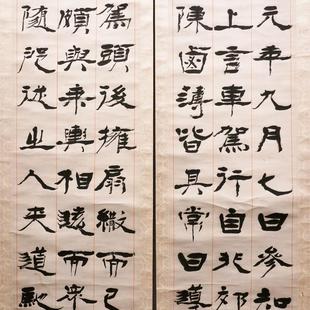 元年九月七日參知
上言車駕行自非郊
陳鹵薄皆具常日導
駕頭後擁扇繖而已
頗與乘輿相遠而眾
隨扈從之人夾道馳